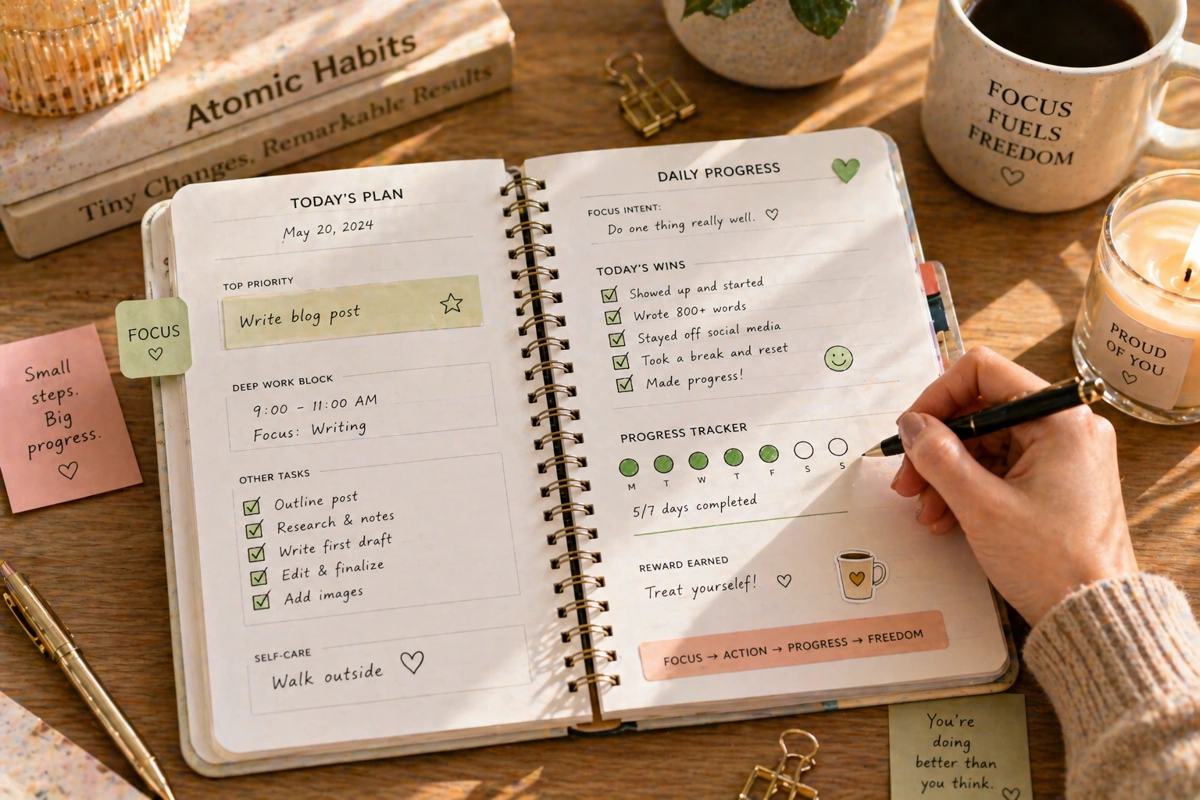 Atomic Habits
Tiny Changes, Remarkable Results
FOCUS
FUELS
FREEDOM
PROUD
OF YOU
Small
steps.
Big
progress.
FOCUS
TODAY'S PLAN
May 20, 2024
TOP PRIORITY
Write blog post
DEEP WORK BLOCK
9:00 - 11:00 AM
Focus: Writing
OTHER TASKS
Outline post
Research & notes
Write first draft
Edit & finalize
Add images
SELF-CARE
Walk outside
DAILY PROGRESS
FOCUS INTENT:
Do one thing really well.
TODAY'S WINS
Showed up and started
Wrote 800+ words
Stayed off social media
Took a break and reset
Made progress!
PROGRESS TRACKER
M T W T F S S
5/7 days completed
REWARD EARNED
Treat yourself!
FOCUS → ACTION → PROGRESS → FREEDOM
You're
doing
better than
you think.